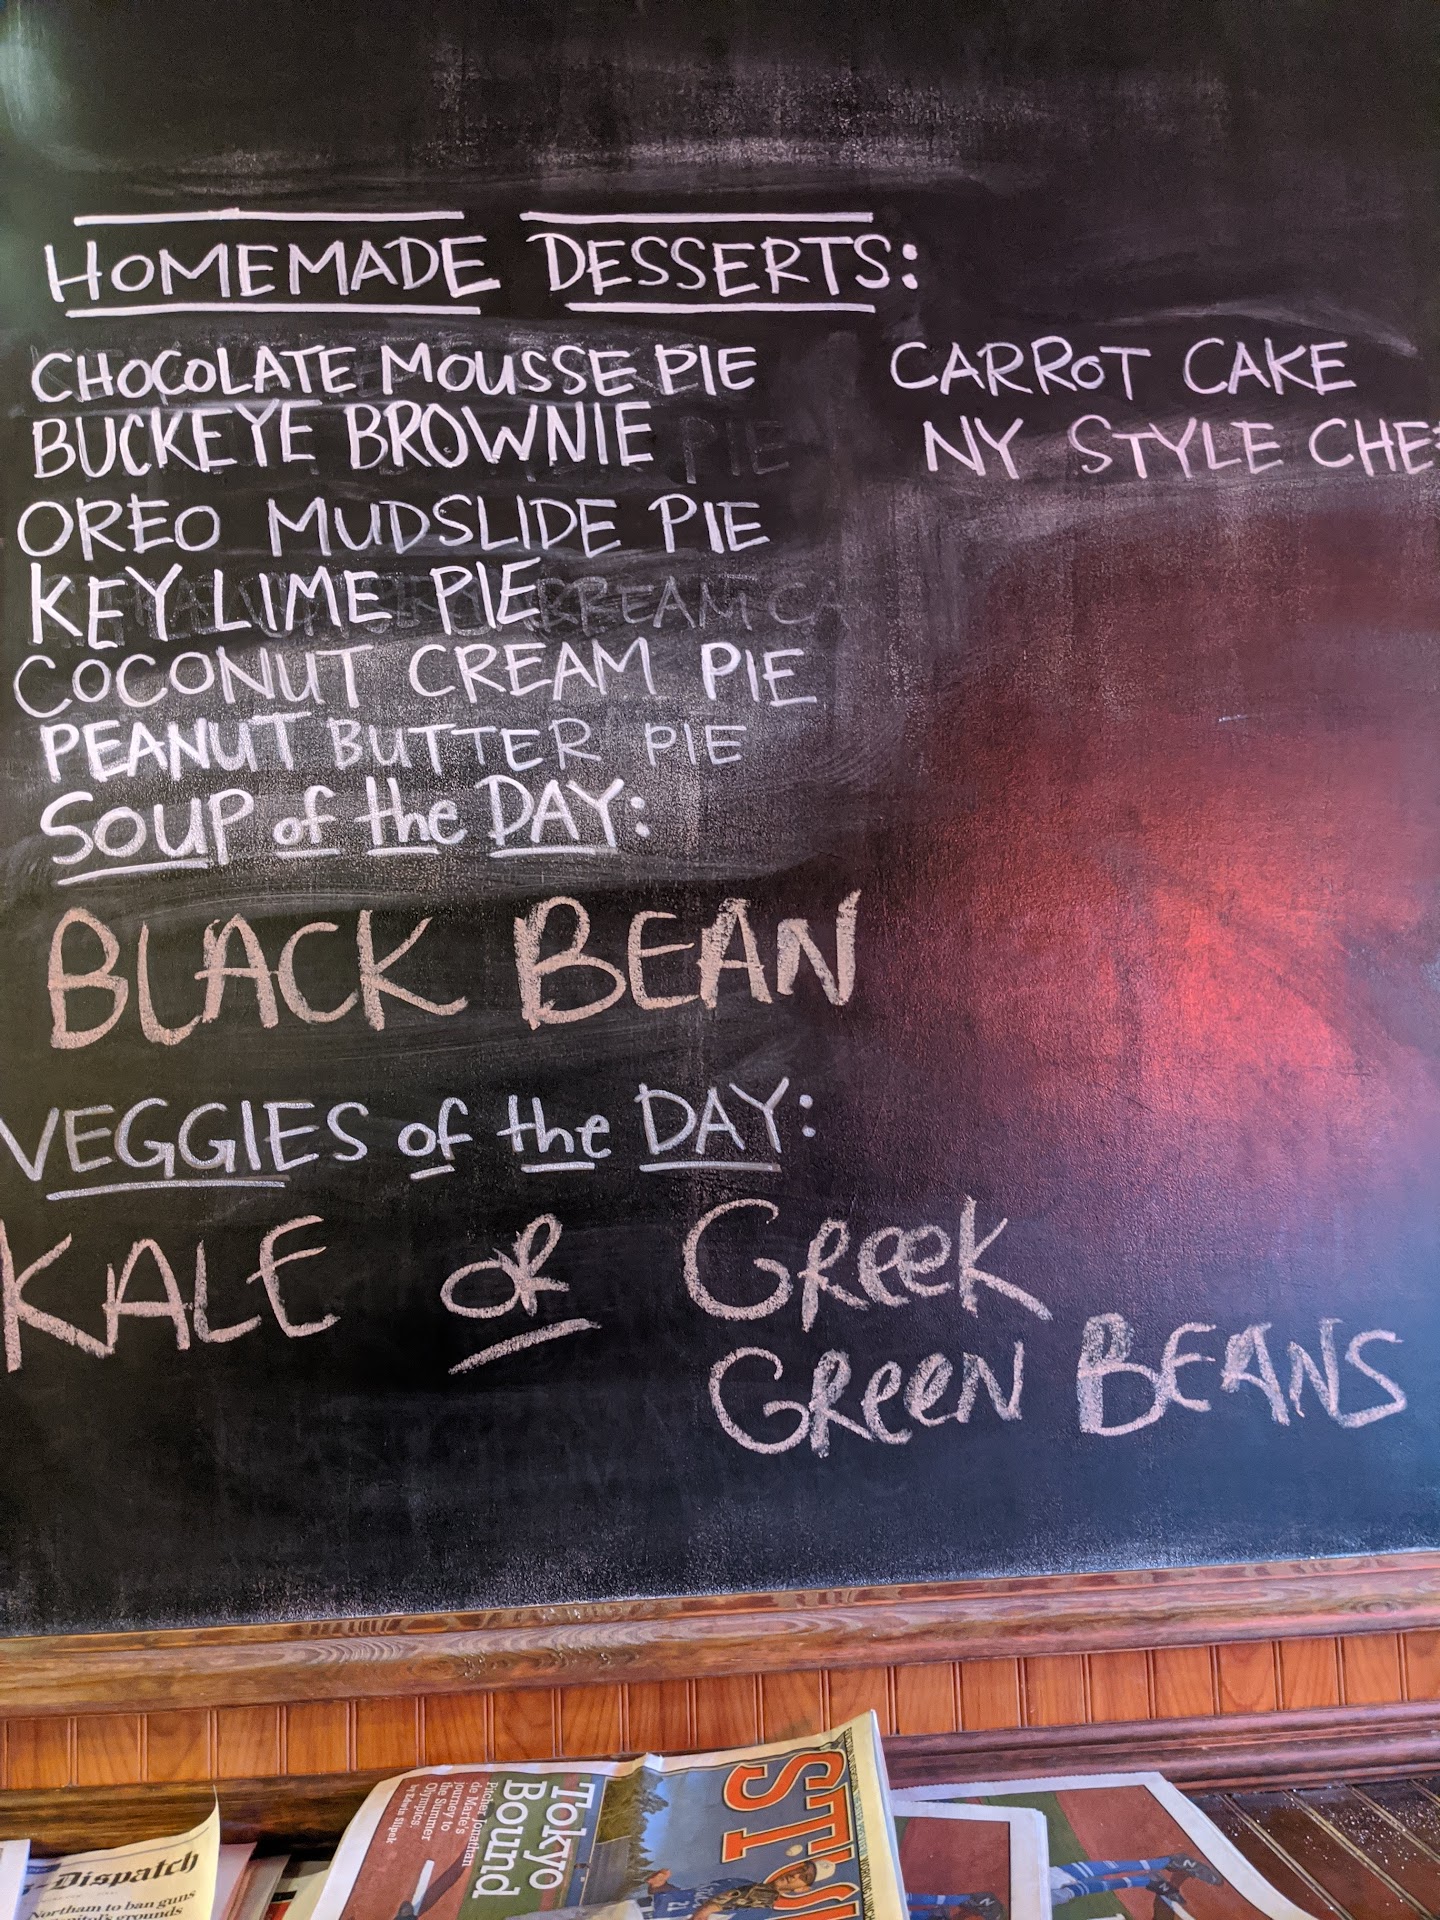 HOMEMADE DESSERTS:
CHOCOLATE MOUSSE PIE
BUCKEYE BROWNIE
OREO MUDSLIDE PIE
KEY LIME PIE
COCONUT CREAM PIE
PEANUT BUTTER PIE
CARROT CAKE
NY STYLE CHE
SOUP of the DAY:
BLACK BEAN
VEGGIES of the DAY:
KALE OR GREEK
GREEN BEANS
-Dispatch
Northam to ban guns
grounds
Tokyo
Bound
Pitcher Jonathan
de Marte's
journey to
the Summer
Olympics.
by Edwin Slipek
ST